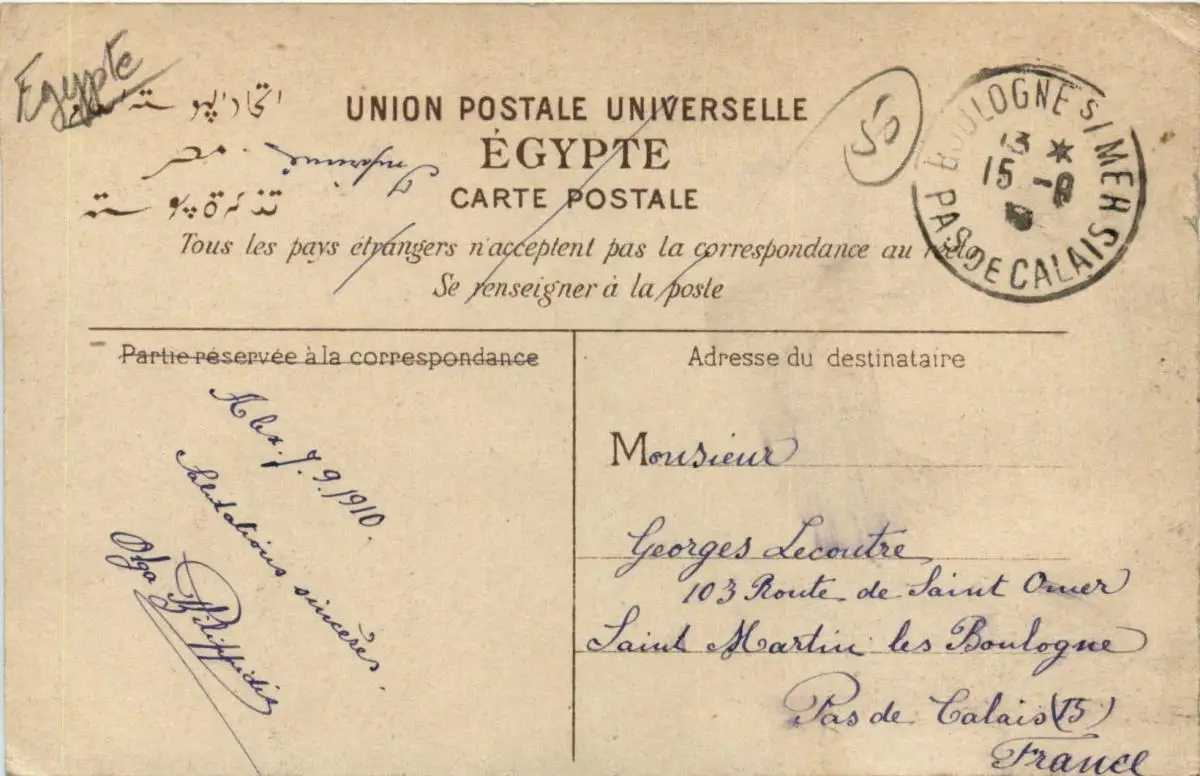 Egypte
اتحاد البوستة
UNION POSTALE UNIVERSELLE
مصر
Imprimé
ÉGYPTE
تذكرة بوستة
CARTE POSTALE
Tous les pays étrangers n'acceptent pas la correspondance au recto
Se renseigner à la poste
55
BOULOGNE S/MER
13 *
15 - 9
PAS DE CALAIS
Partie réservée à la correspondance
Adresse du destinataire
Alex. 7.9/1910.
Salutations sincères.
Olga Philippidis
Monsieur
Georges Lecoutre
103 Route de Saint Omer
Saint Martin les Boulogne
Pas de Calais (B)
France